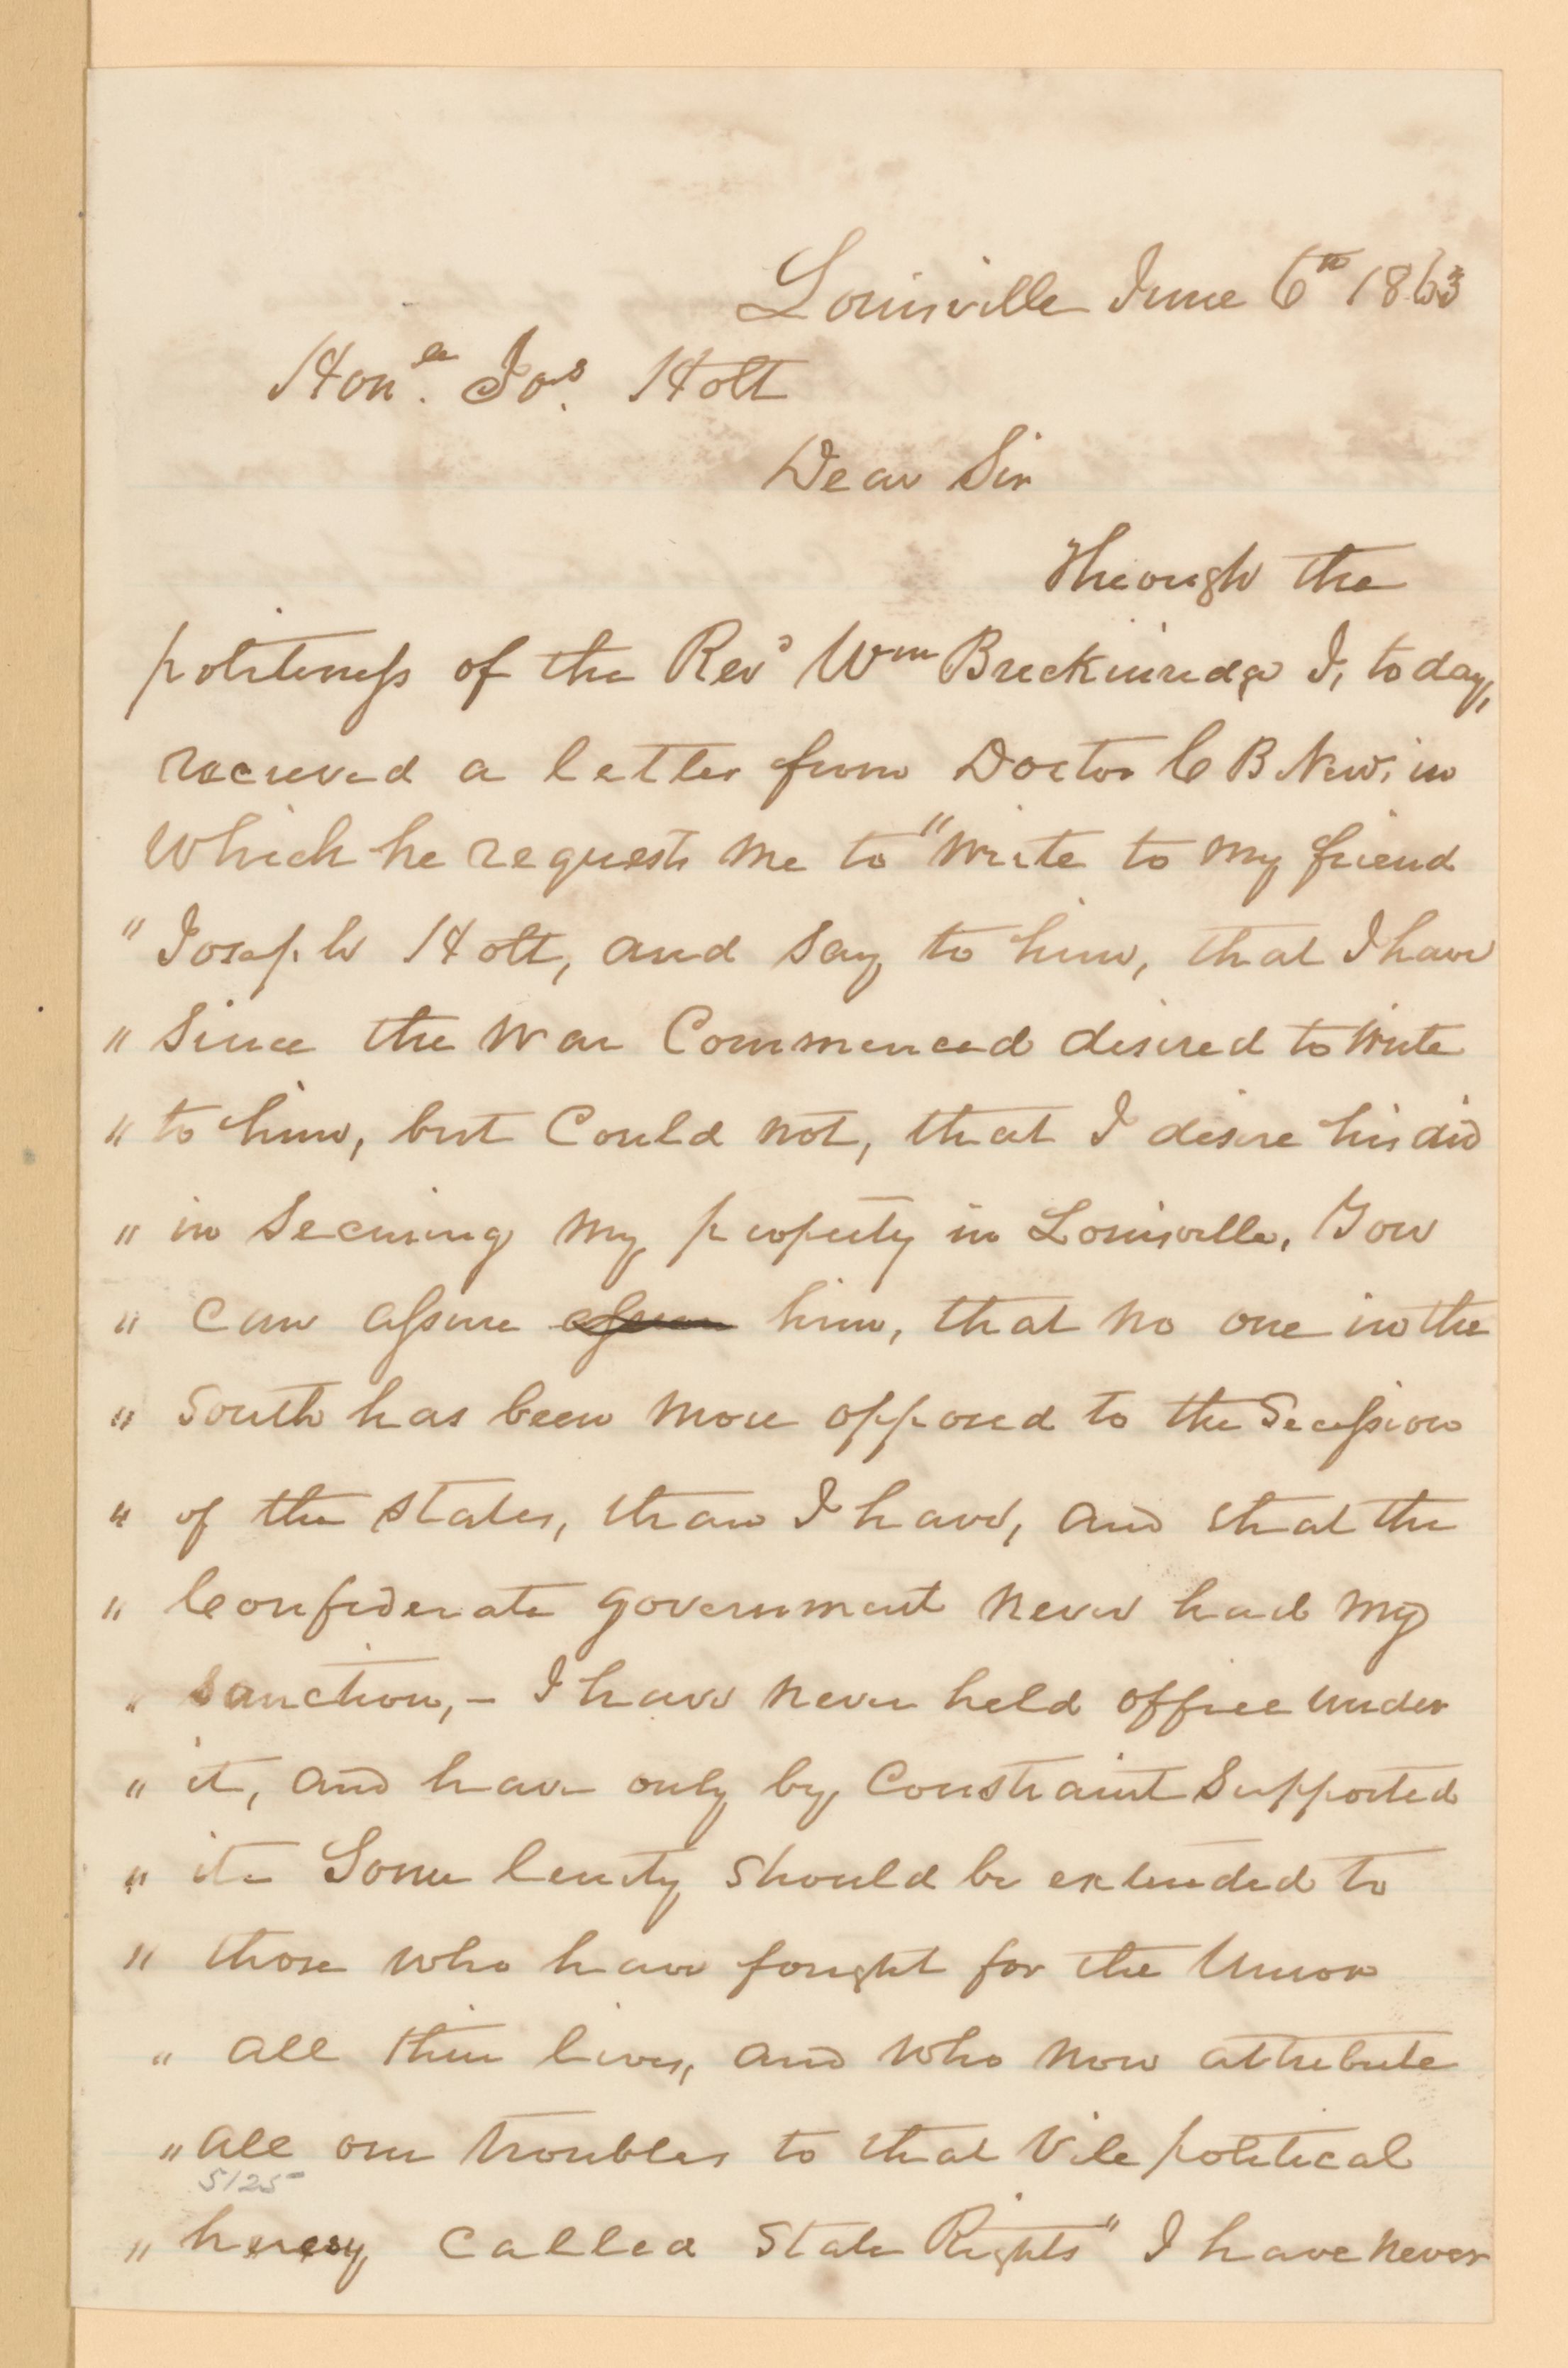 Louisville June 6th 1863
Honle. Jos. Holt
Dear Sir
Through the
politeness of the Revd Wm Breckinridge I, to day,
recieved a letter from Doctor C B New, in
which he requests me to "write to my friend
" Joseph Holt, and say to him, that I have
" since the war Commenced desired to write
" to him, but Could not, that I desire his aid
" in securing my property in Louisville, You
" can assure assure him, that no one in the
" South has been more opposed to the Secession
" of the States, than I have, and that the
" Confederate government never had my
" sanction, - I have never held office under
" it, and have only by Constraint Supported
" it - Some lenity should be extended to
" those who have fought for the Union
" all their lives, and who now attribute
" all our troubles to that Vile political
5125
" heresy called State Rights" I have never